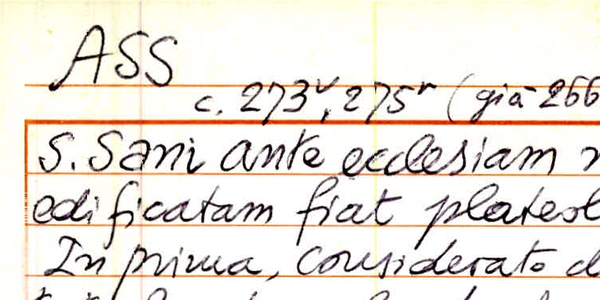 ASS
c. 273v, 275r (già 266
S. Sani ante ecclesiam
edificatam fiat plateol
In prima, considerato